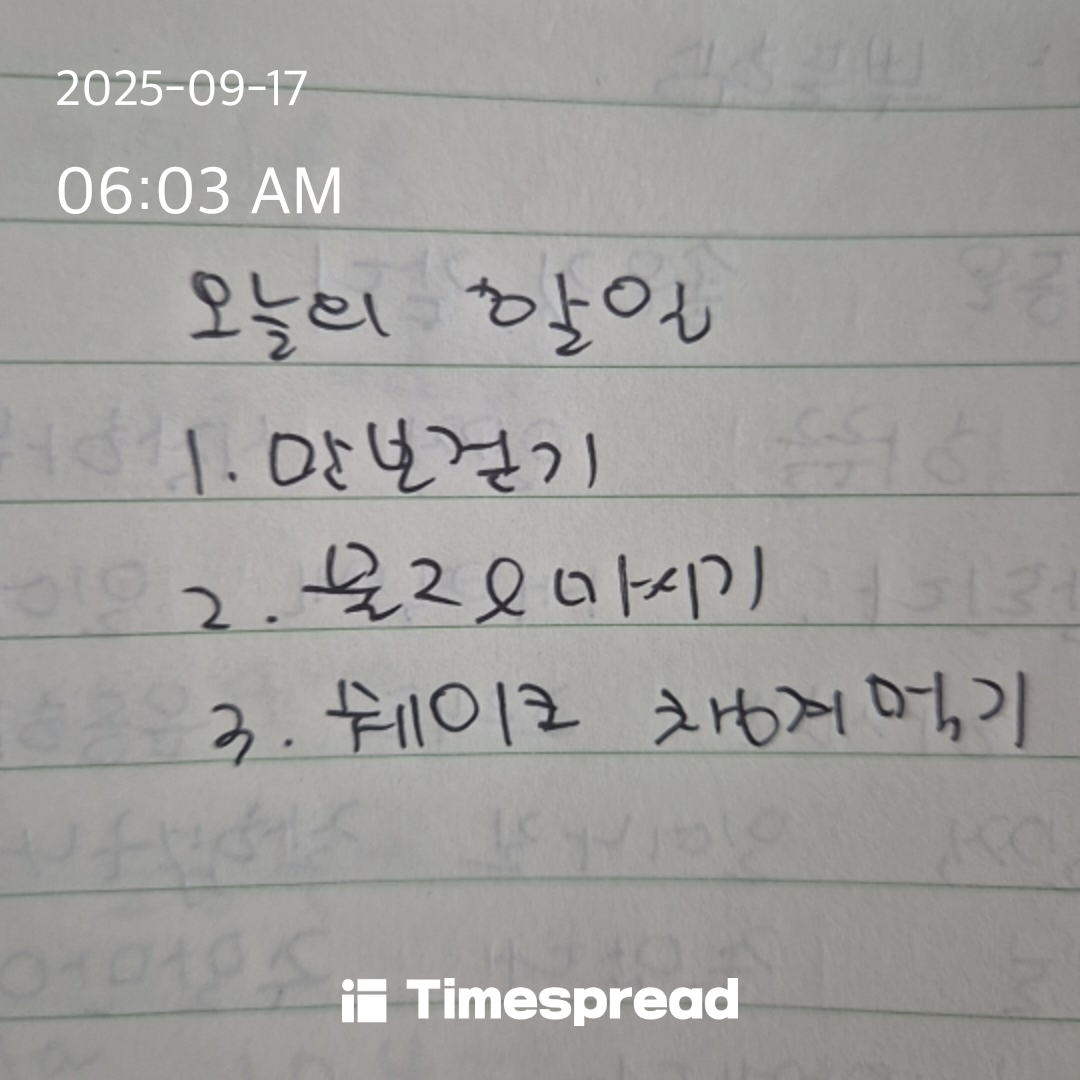 2025-09-17
06:03 AM
오늘의 할일
1. 만보걷기
2. 물2l마시기
3. 쉐이크 챙겨먹기
Timespread